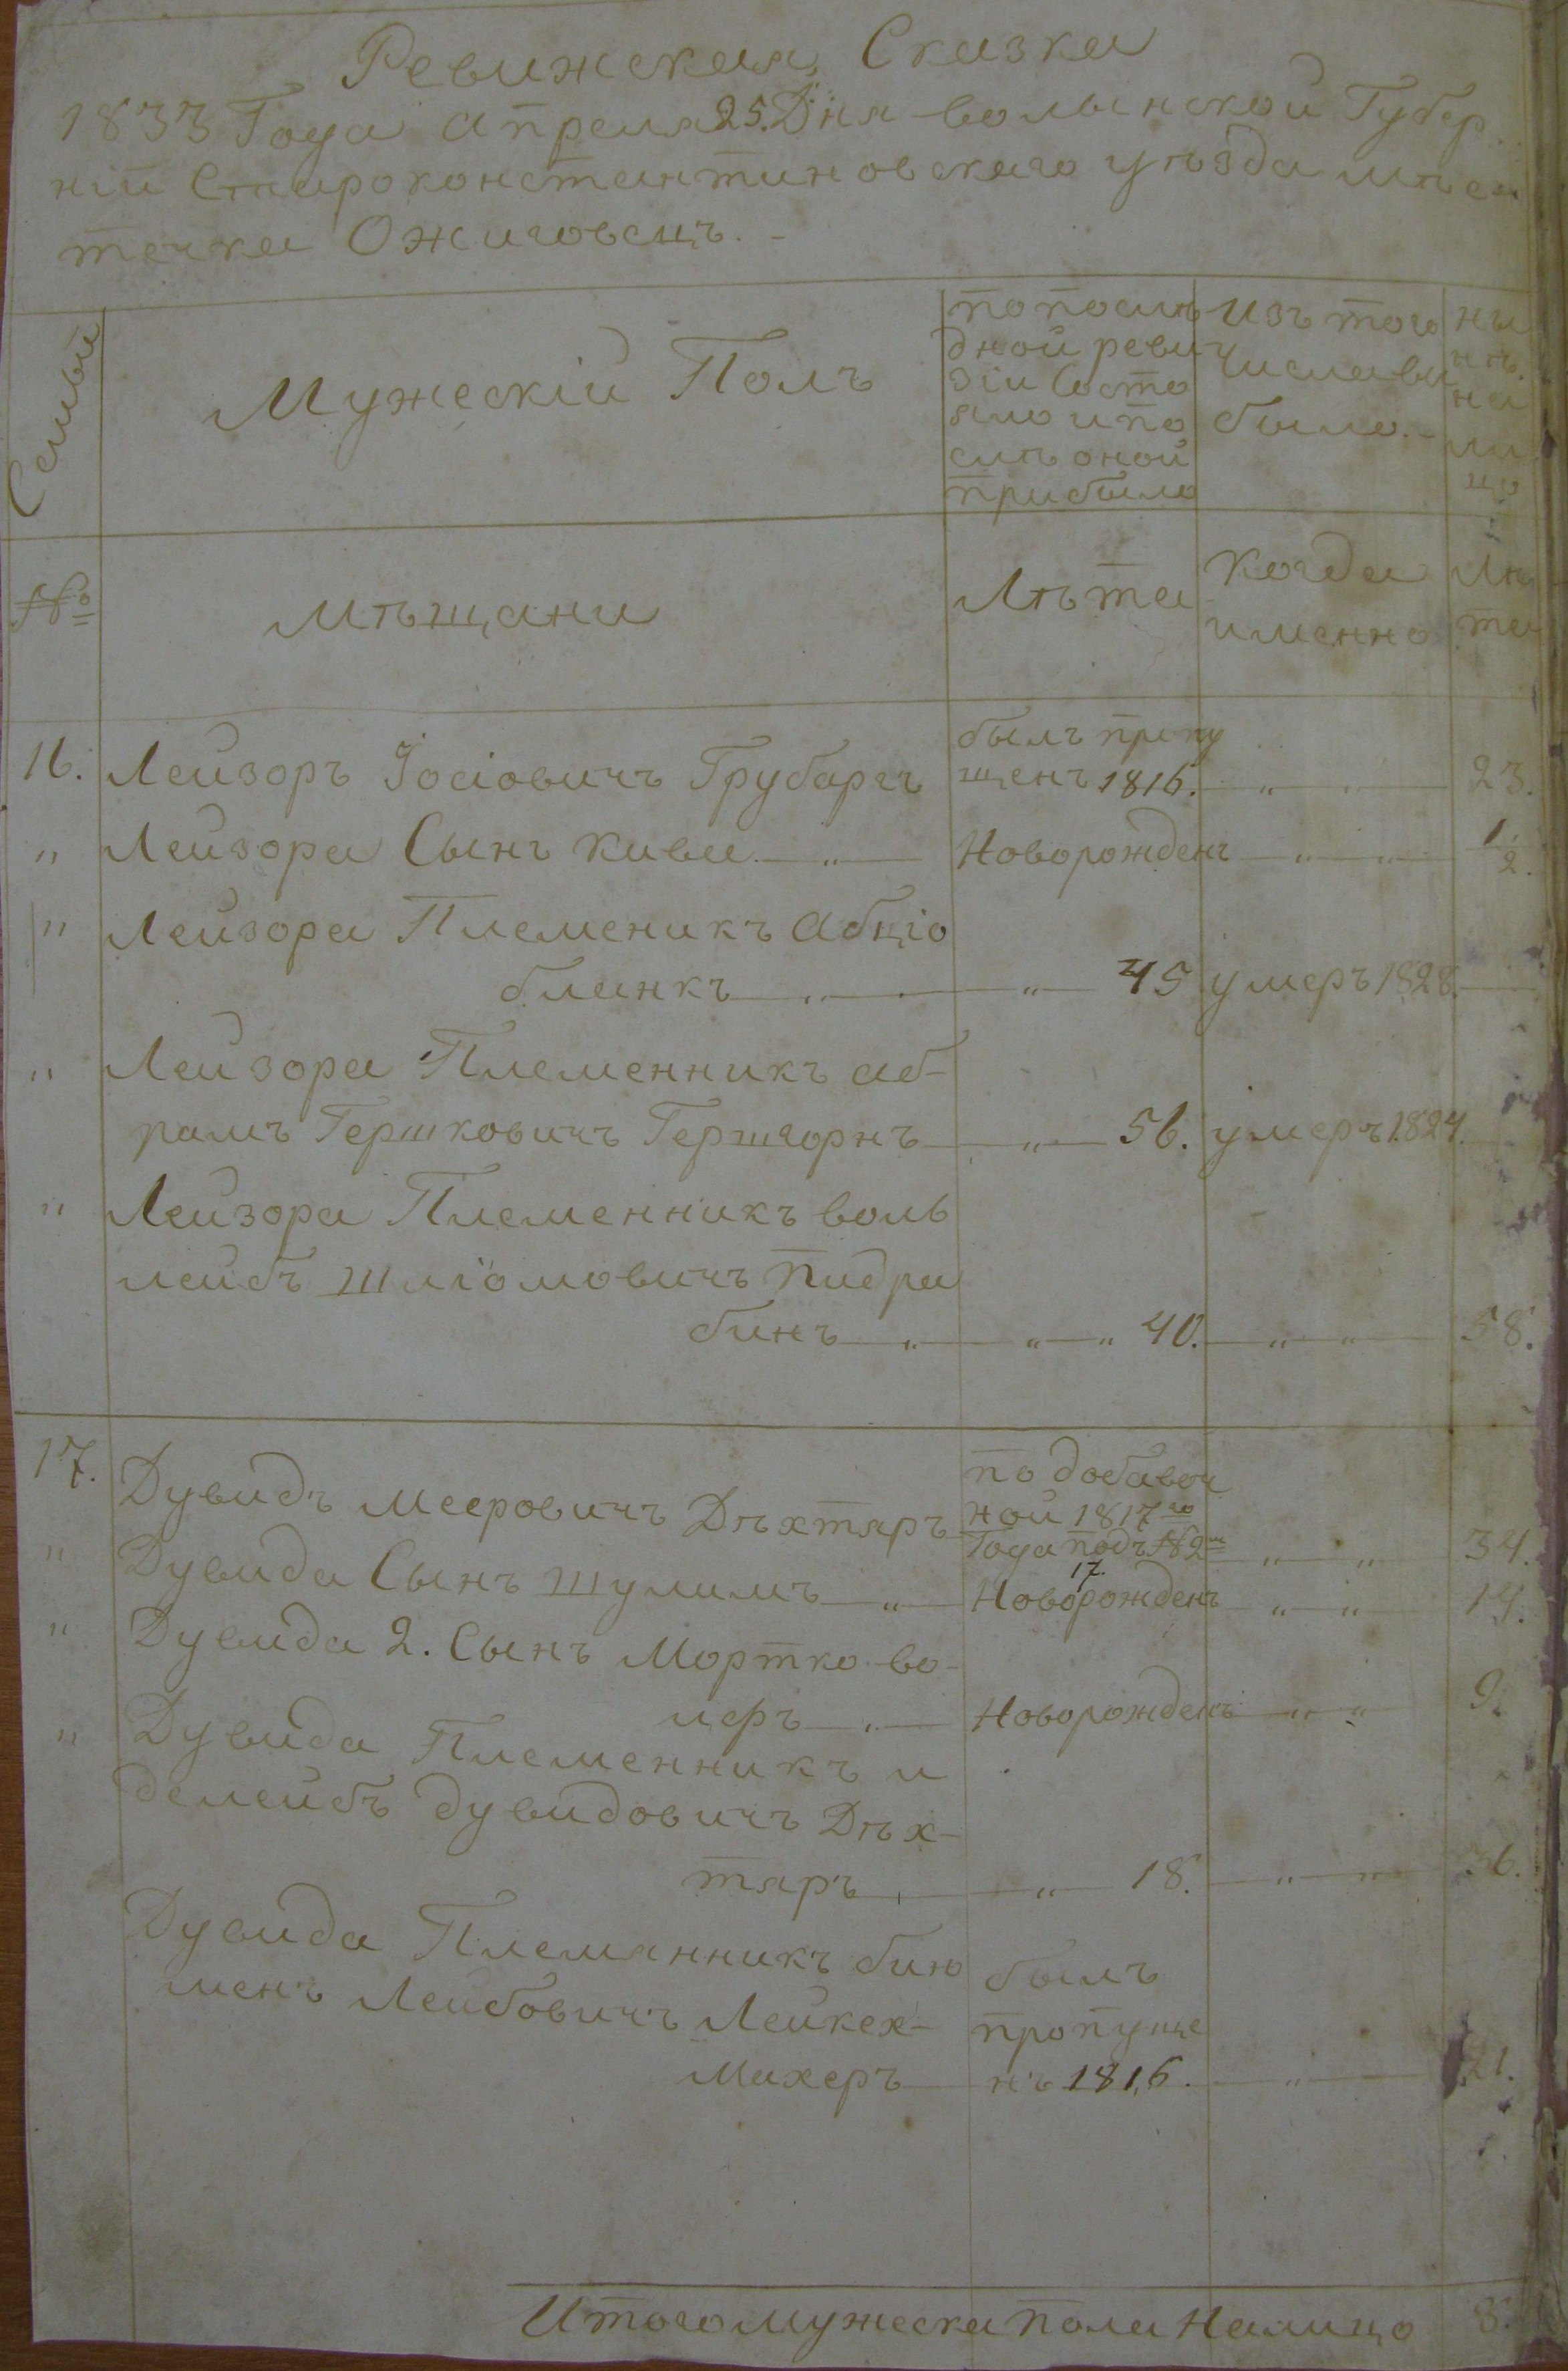 Ревижская Сказка
1833 Года Апреля 25. Дня волынской Губер
ніи Староконстантиновскаго уѣзда мѣс
течка Ожиговецъ. -
Семьи
Мужескій Полъ
по послѣ
дной реви
зіи Состо
яло и по
слѣ оной
прибыло
Изъ того
Числа вы
было. -
ны
нѣ.
на
ли
цо
№
мѣщани
Лѣта
Когда
именно
Лѣ
та
16. Лейзоръ Іосіовичъ Грубаргъ
былъ пропу
щенъ 1816. „ 23.
„ Лейзора Сынъ Кива „ Новорожденъ „ „ 1/2.
„ Лейзора Племеникъ Абціо
бланкъ „ „ 45 умеръ 1828.
„ Лейзора Племенникъ аб-
рамъ Гершковичъ Гершгорнъ „ 56. умеръ 1824.
„ Лейзора Племенникъ воль
лейбъ Шліомовичъ Пидра
бинъ „ „ „ 40. „ „ 58.
17. Дувидъ Мееровичъ Дѣхтяръ
по добавоч
ной 1817го
Года подъ №2м „ „ 34.
17.
„ Дувида Сынъ Шулимъ „ Новорожденъ „ „ 14.
„ Дувида 2. Сынъ Мортко во-
лфъ „ Новорожденъ „ „ 9.
„ Дувида Племенникъ и
делейбъ дувидовичъ Дѣх-
тяръ „ 18. „ „ 36.
Дувида Племянникъ бин
менъ Лейбовичъ Лейкех-
Махеръ
былъ
пропуще
нъ 1816. „ 21.
Итого мужеска пола Налицо 8.